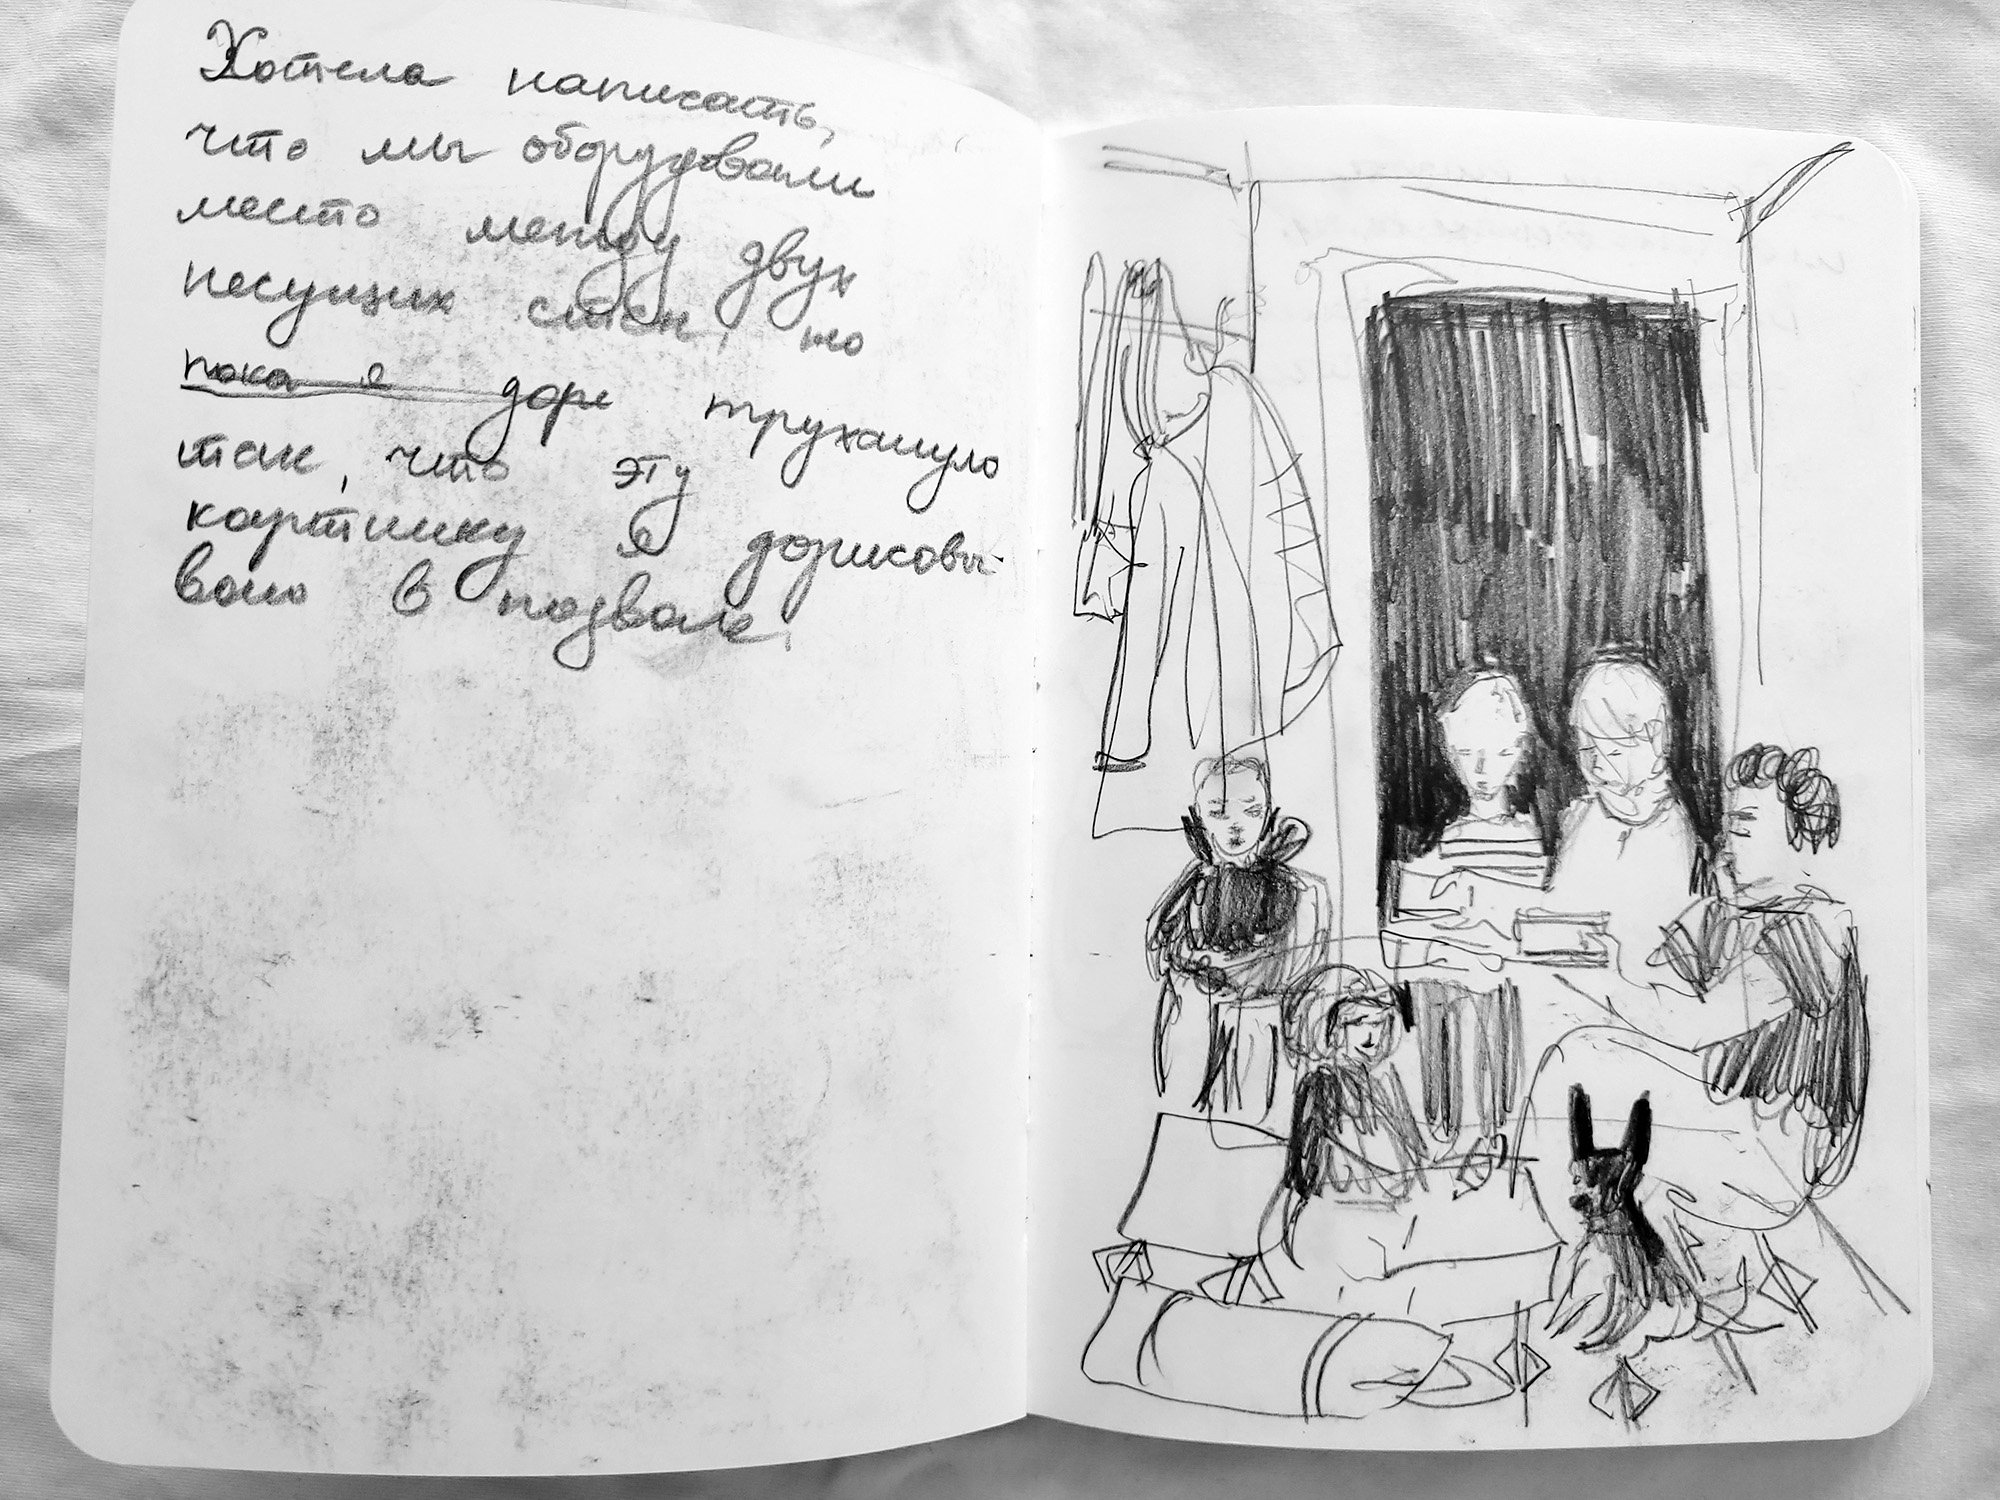 Хотела написать,
что мы оборудовали
место между двух
несущих стен, но
пока я доре трухануло
так, что эту
картинку я дорисовы-
ваю в подвале.